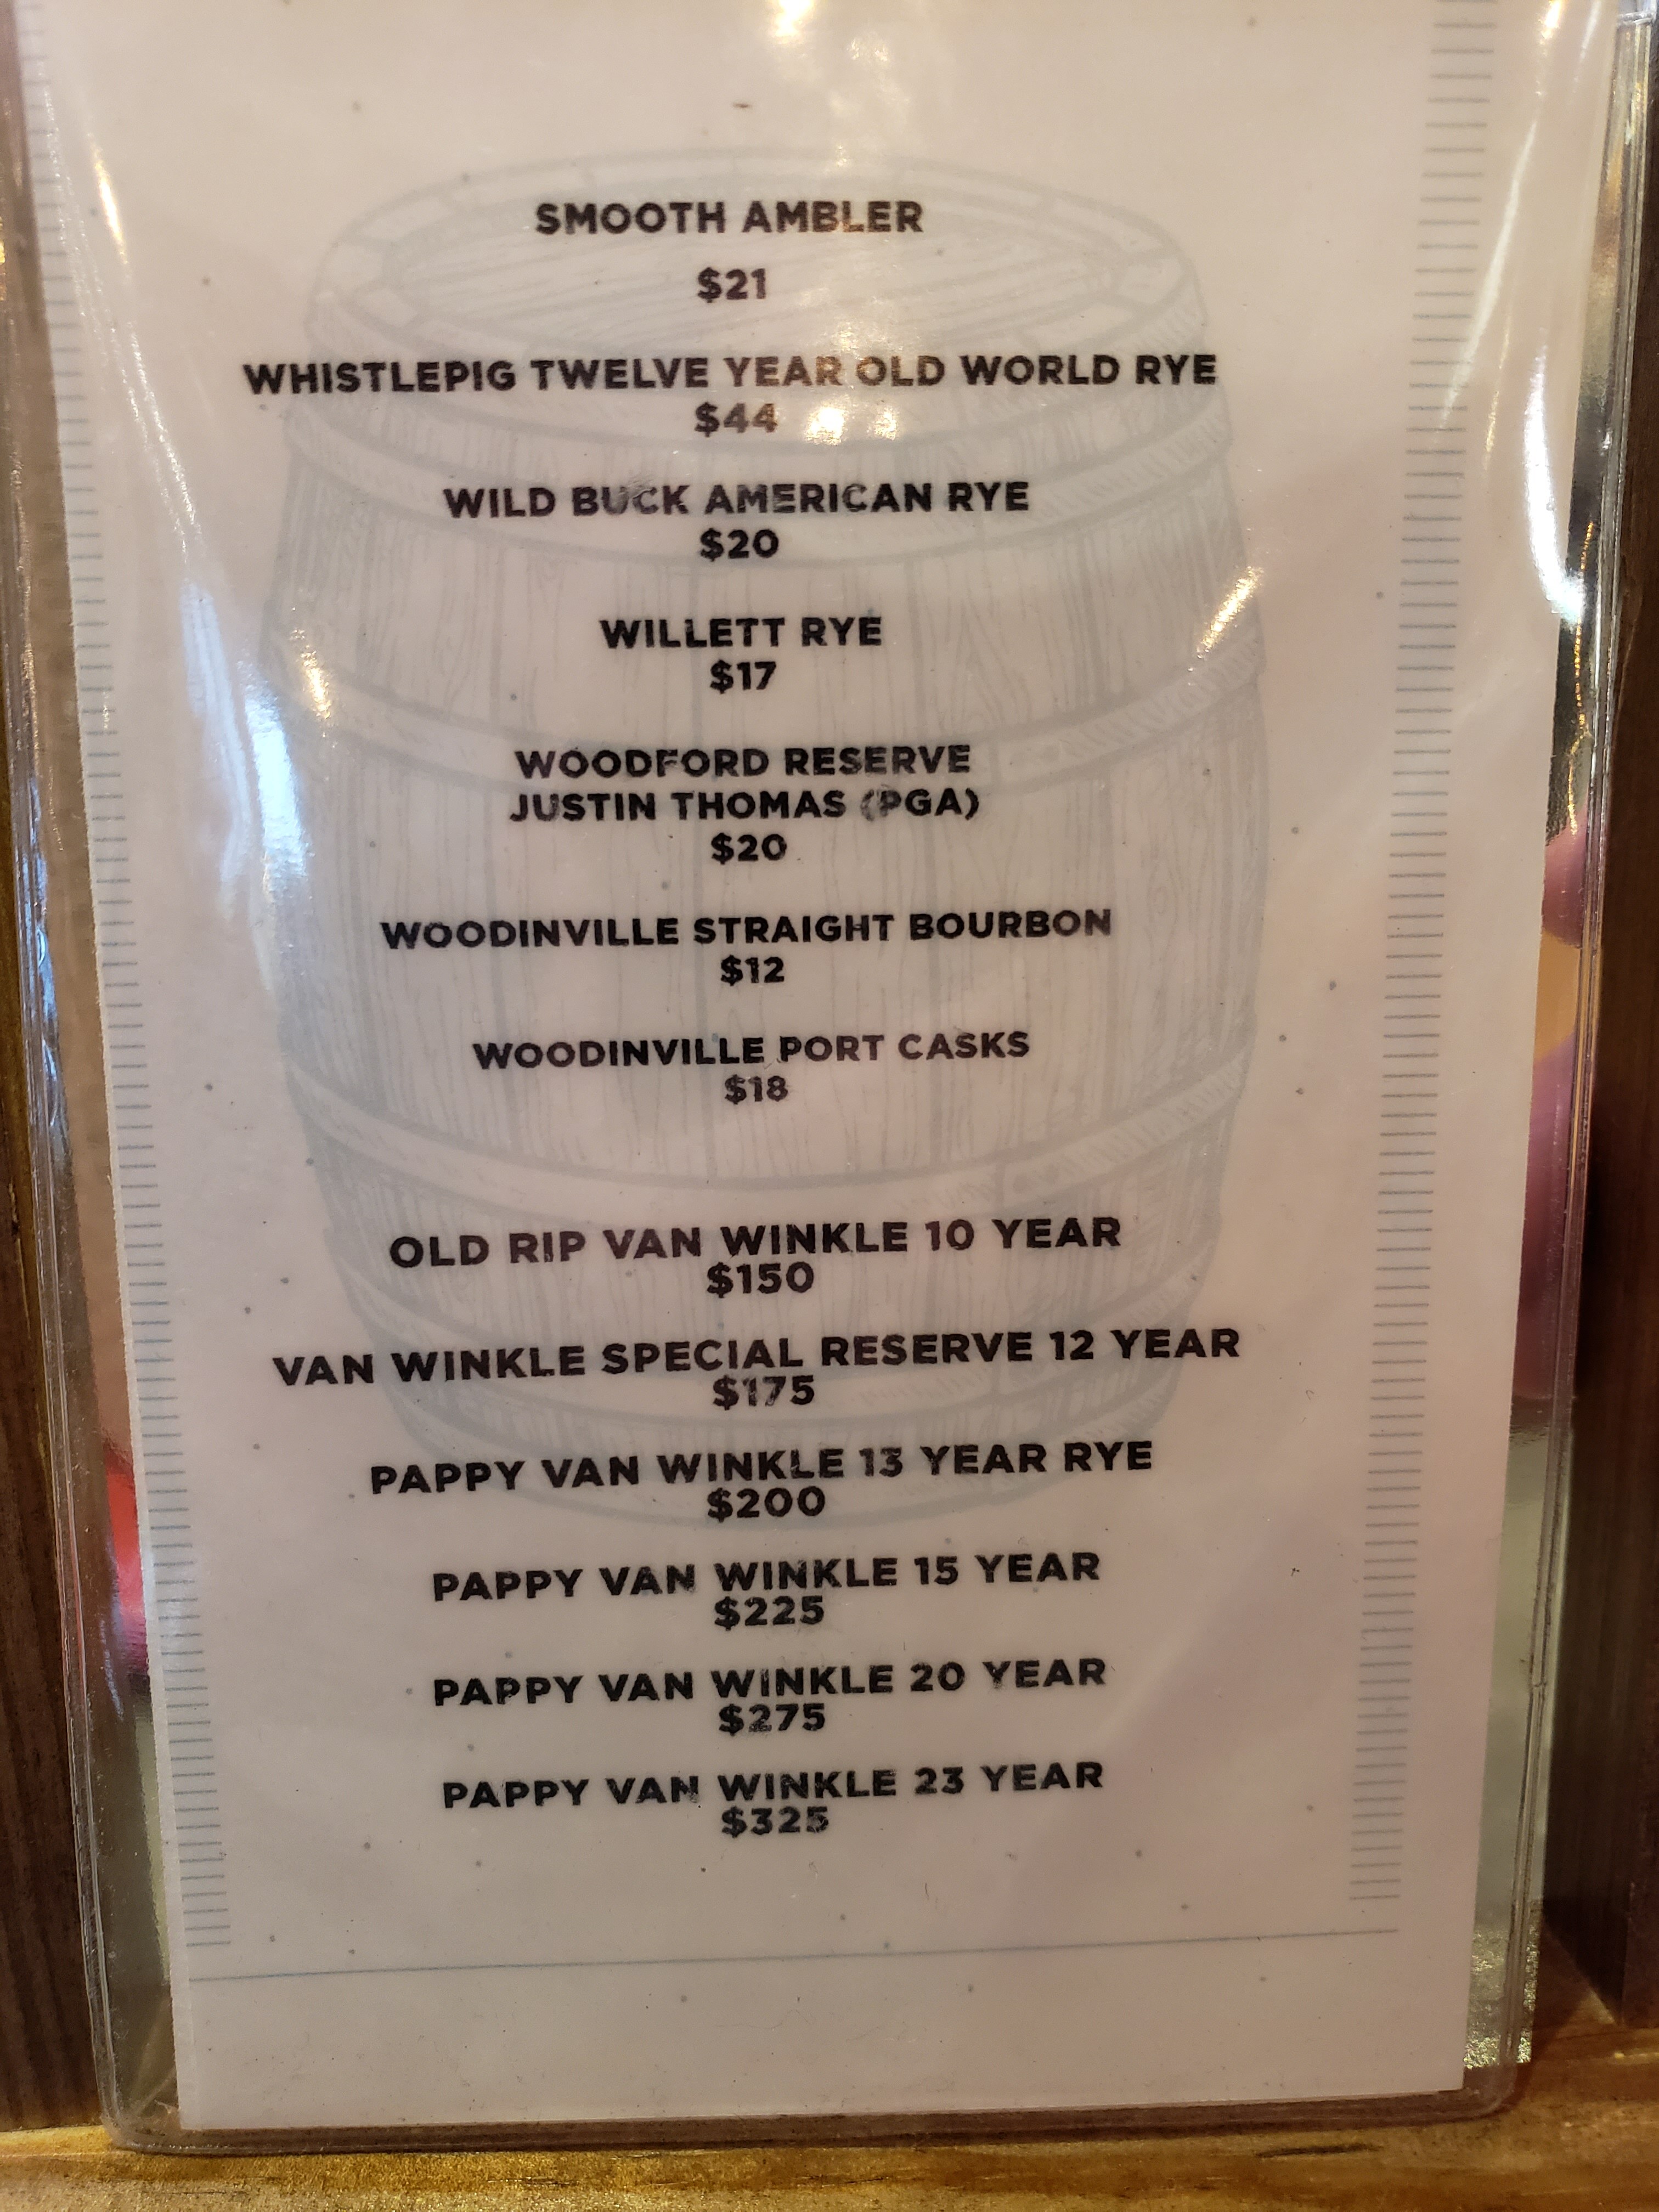 SMOOTH AMBLER
$21
WHISTLEPIG TWELVE YEAR OLD WORLD RYE
$44
WILD BUCK AMERICAN RYE
$20
WILLETT RYE
$17
WOODFORD RESERVE
JUSTIN THOMAS (PGA)
$20
WOODINVILLE STRAIGHT BOURBON
$12
WOODINVILLE PORT CASKS
$18
OLD RIP VAN WINKLE 10 YEAR
$150
VAN WINKLE SPECIAL RESERVE 12 YEAR
$175
PAPPY VAN WINKLE 13 YEAR RYE
$200
PAPPY VAN WINKLE 15 YEAR
$225
PAPPY VAN WINKLE 20 YEAR
$275
PAPPY VAN WINKLE 23 YEAR
$325